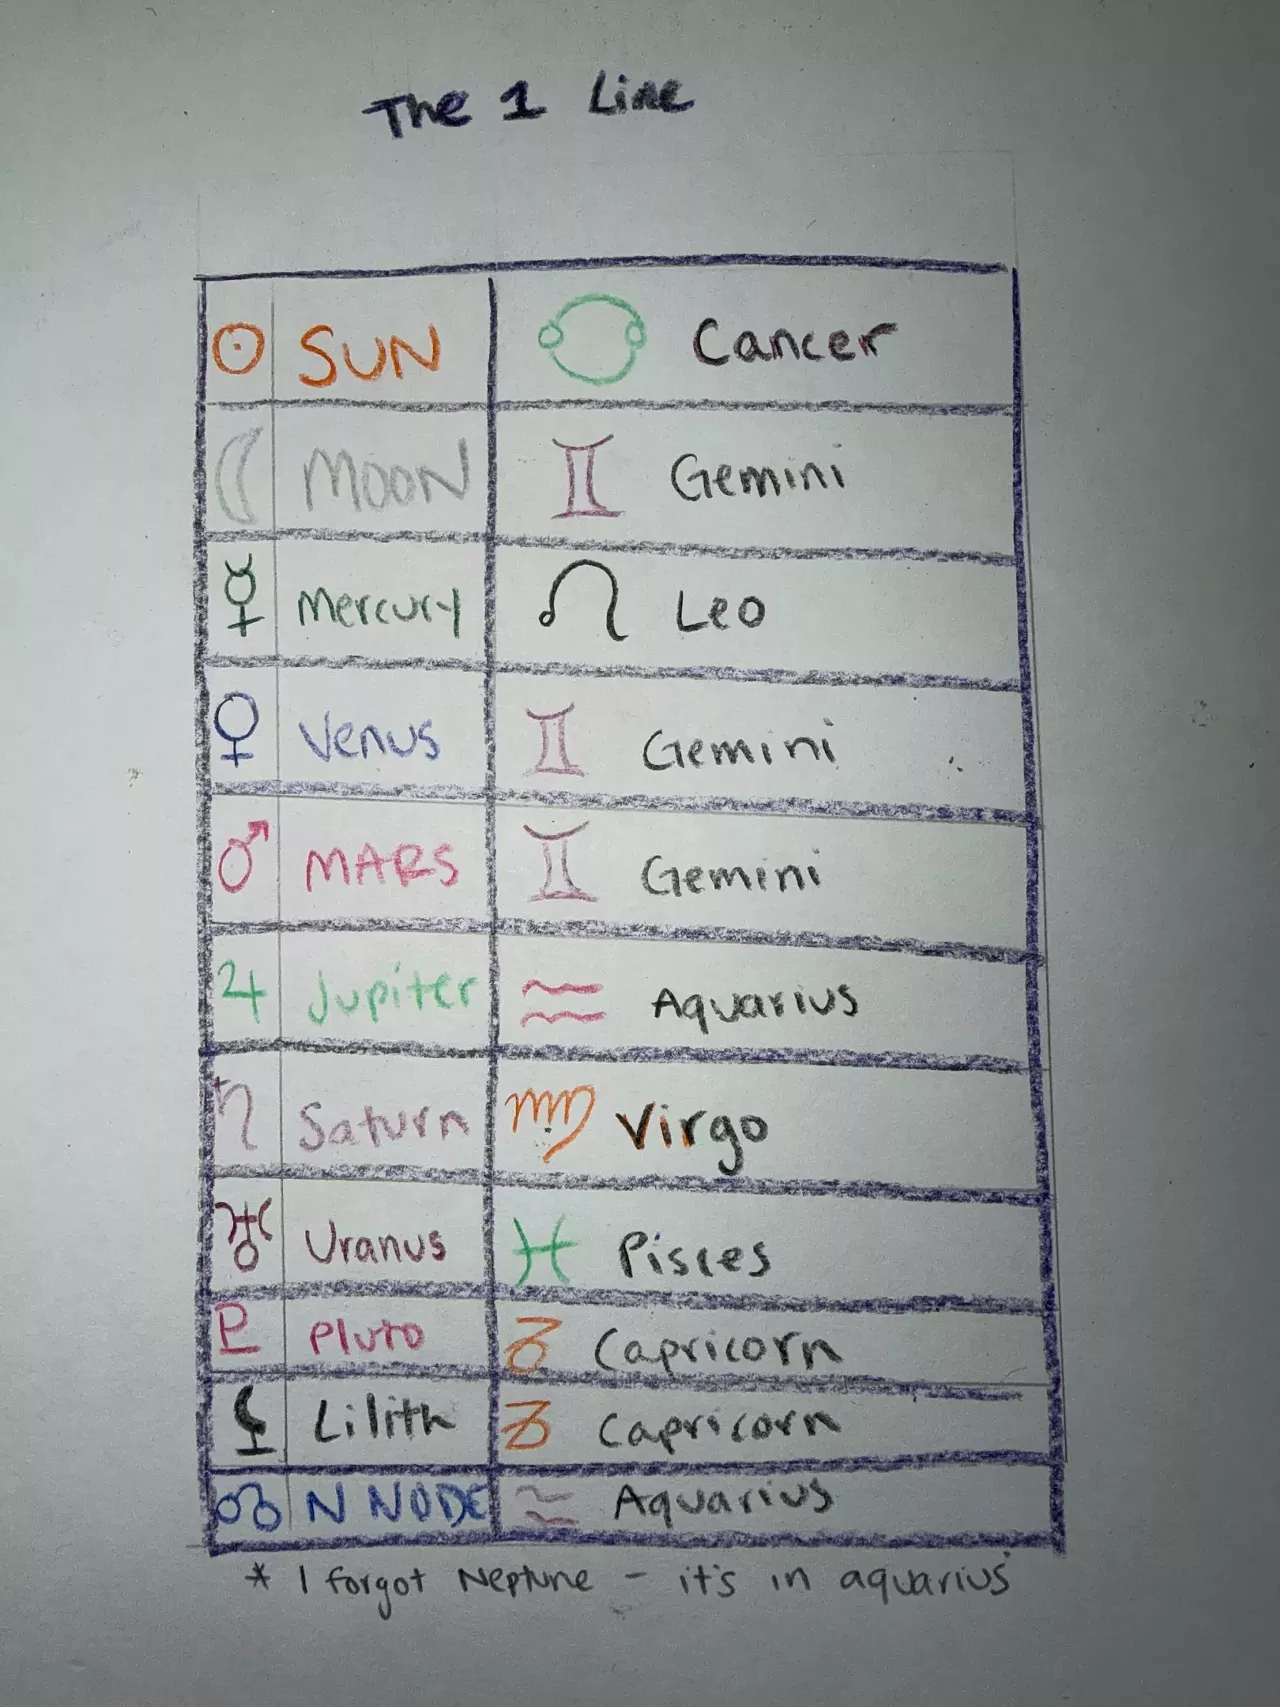 The 1 Line
☉ SUN ♋ Cancer
☾ MOON ♊ Gemini
☿ Mercury ♌ Leo
♀ Venus ♊ Gemini
♂ MARS ♊ Gemini
♃ Jupiter ♒ Aquarius
♄ Saturn ♍ Virgo
♅ Uranus ♓ Pisces
♇ Pluto ♑ Capricorn
⚸ Lilith ♑ Capricorn
☊ N NODE ♒ Aquarius
* I forgot Neptune - it's in aquarius